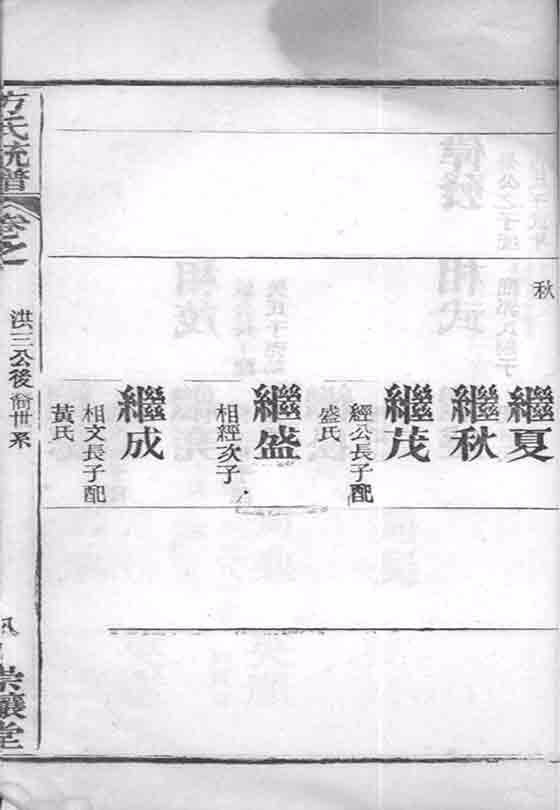 秋
繼夏
繼秋
繼茂
經公長子配
盛氏
繼盛
相經次子
繼成
相文長子配
黃氏
方氏統譜
卷之一
洪三公後裔世系
堂